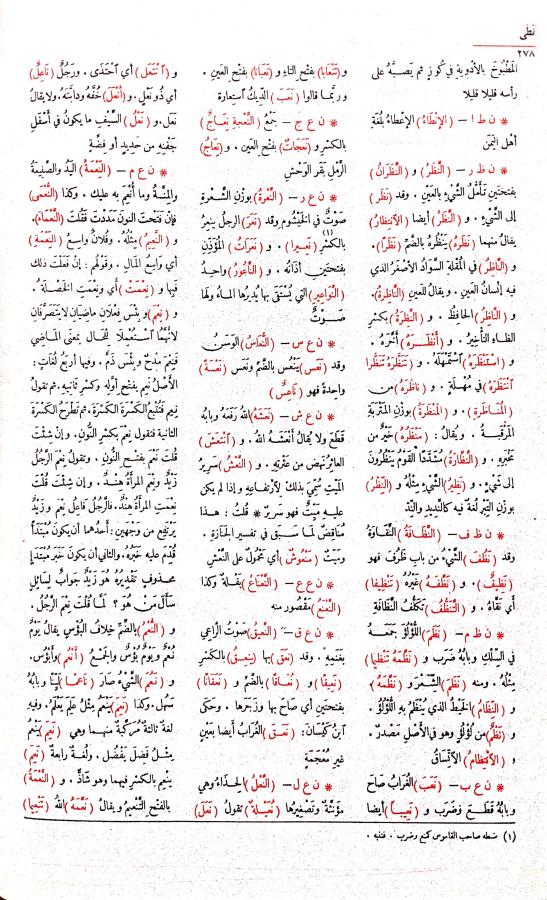 نَطَى
٢٧٨
المَطْبُوخَ بالأدوِية في كُوزٍ ثم يَصبّهُ على
رأسه قليلا قليلا
* ن ط ا – (الإنْطَاءُ) الإعْطاءُ بلُغَةِ
أهل اليَمَن
* ن ظ ر – (النَّظَرُ) و (النَّظَرَانُ)
بفتحتين تَأَمُّلُ الشَّيْءِ بالعَيْنِ . وقد (نَظَر)
إلى الشَّيْءِ . و (النَّظَرُ) أيضا (الاِنتِظارُ)
يقالُ منهما (نَظَرَهُ) يَنْظُرُه بالضَّمِّ (نَظَرًا).
و (الناظِرُ) في المُقْلةِ السَّوادُ الأصْغَرُ الذي
فيه إنْسانُ العَيْنِ . ويقالُ للعَيْنِ (النَّاظِرةُ).
و (الناظِرُ) الحافِظُ . و (النَّظِرَةُ) بكسْرِ
الظاء التَّأخيرُ . و (أنْظَرَهُ) أخَّرَهُ .
و (اسْتَنْظَرَهُ) اسْتَمْهَلَهُ . و (تَنَظَّرَهُ تَنَظُّرا)
انْتَظَرَهُ في مُهْلَةٍ . و (ناظَرَهُ) من
(المُناظَرةِ) . و (المَنْظَرَةُ) بوزْنِ المَتْرَبةِ
المَرْقَبةُ . ويقالُ : (مَنْظَرُه) خَيْرٌ من
مَخْبَرِه . و (النَّظَّارَةُ) مُشَدَّدًا القَوْمُ يَنْظُرونَ
إلى شَيْءٍ . و (نَظِيرُ) الشَّيْءِ مِثْلُهُ و (النِّظْرُ)
بوَزْنِ التِّبْرِ لُغَةٌ فيه كالنَّديدِ والنِّدِّ
* ن ظ ف – (النَّظَافَةُ) النَّقَاوةُ
وقد (نَظُفَ) الشَّيْءُ من باب ظَرُفَ فهو
(نَظِيفٌ) . و (نَظَّفَهُ) غيْرُه (تَنْظِيفا)
أي نَقَّاهُ . و (التَّنَظُّفُ) تَكَلُّفُ النَّظَافَةِ
* ن ظ م – (نَظَمَ) اللُّؤْلُؤَ جَمَعَهُ
في السِّلْكِ وبابُهُ ضَرَب و (نَظَّمَهُ تَنْظِيما)
مِثْلُهُ . ومنه (نَظَمَ) الشِّعْرَ و (نَظَّمَهُ) .
و (النِّظَامُ) الخَيْطُ الذي يُنْظَمُ به اللُّؤْلُؤُ .
و (نَظْمٌ) من لُؤْلُؤٍ وهو في الأصْلِ مَصْدرٌ .
و (الانْتِظَامُ) الاتِّسَاقُ
* ن ع ب – (نَعَبَ) الغُرابُ صَاحَ
وبابُهُ قَطَع وضَرَب و (نَعِيبًا) أيضا
و (تَنْعَابا) بفَتْحِ التاءِ و (نَعَبَانًا) بفَتْحِ العَيْنِ .
ورُبَّما قالوا (نَعَبَ) الدِّيكُ اسْتِعارة
* ن ع ج – جَمْعُ (النَّعْجةِ نِعاجٌ)
بالكسْرِ و (نَعَجاتٌ) بفَتْحِ العَيْنِ . و (نِعَاجُ)
الرَّمْلِ بَقَرُ الوَحْشِ
* ن ع ر – (النُّعَرةُ) بوزْنِ الشُّعْرةِ
صَوْتٌ في الخَيْشُومِ وقد (نَعَرَ) الرجلُ يَنْعِرُ
بالكَسْرِ (١) (نَعِيرا) . و (نَعَرَاتُ) المُؤَذِّنِ
بفتحتين أذانُه . و (النَّاعُورُ) واحدُ
(النَّواعيرِ) التي يُسْتَقَى بها يُدِيرُها الماءُ ولها
صَوْتٌ
* ن ع س – (النُّعَاسُ) الوَسَنُ
وقد (نَعَسَ) يَنْعُس بالضَّمِّ ونَعَسَ (نَعْسَةً)
واحدةً فهو (نَاعِسٌ)
* ن ع ش – (نَعَشَهُ) اللهُ رَفَعَهُ وبابُه
قَطَعَ ولا يُقالُ أنْعَشَهُ اللهُ . و (انْتَعَشَ)
العاثِرُ نَهَضَ من عَثْرتِهِ . و (النَّعْشُ) سَرِيرُ
المَيِّتِ سُمِّيَ بذلك لارْتِفاعِهِ وإذا لم يكن
عليه مَيِّتٌ فهو سَرِيرٌ * قُلتُ : هذا
مُناقِضٌ لمَا سَبَق في تفسير الجِنازةِ .
ومَيِّتٌ (مَنْعُوشٌ) أي محْمُولٌ على النَّعْشِ
* ن ع ع – (النَّعْنَاعُ) بَقْلةٌ وكذا
(النَّعْنَعُ) مَقْصُور منه
* ن ع ق – (النَّعِيقُ) صَوْتُ الرَّاعي
بغَنَمِهِ . وقد (نَعَقَ) بها (يَنْعِقُ) بالكَسْرِ
(نَعِيقًا) و (نُعَاقًا) بالضَّمِّ و (نَعَقَانًا)
بفتحتين أي صاحَ بها وزَجَرها . وحكى
ابنُ كَيْسانَ: (نَعَقَ) الغُرابُ أيضا بعَيْنٍ
غيرِ مُعْجَمةٍ
* ن ع ل – (النَّعْلُ) الحِذاءُ وهي
مؤنَّثةٌ وتصغيرُها (نُعَيْلَةٌ) تقولُ (نَعَلَ)
و (انْتَعَل) أي احْتَذَى . ورَجُلٌ (ناعِلٌ)
أي ذو نَعْلٍ . و (أنْعَلَ) خُفَّهُ ودابَّتَهُ . ولا يقالُ
نَعَلَ . و (نَعْلُ) السَّيْفِ ما يكونُ في أسْفَلِ
جَفْنِه من حَدِيدٍ أو فِضَّةٍ
* ن ع م – (النِّعْمَةُ) اليَدُ والصَّنِيعةُ
والمِنَّةُ وما أُنْعِم به عليك . وكذا (النُّعْمَى)
فإن فَتَحْتَ النونَ مَدَدْتَ فقُلْتَ (النَّعْماءَ).
و (النَّعِيمُ) مِثْلُهُ . وفلانٌ واسعُ (النِّعْمَةِ)
أي وَاسِعُ المَالِ . وقولُهم : إنْ فَعَلْتَ ذلك
فَبِها و (نِعْمَتْ) أي ونِعْمَتِ الخَصْلَة .
و (نِعْمَ) وبِئْسَ فِعْلانِ ماضِيَانِ لا يَتَصَرَّفانِ
لأنَّهُما اسْتُعْمِلا للحَالِ بمعنى المَاضي
فَنِعْمَ مَدْحٌ وبِئْسَ ذَمٌّ . وفيها أربَعُ لغاتٍ :
الأصْلُ نَعِمَ بفتْحِ أوَّلِه وكَسْرِ ثانيهِ . ثم تقولُ
نِعِمَ فتُتْبِعُ الكَسْرةَ الكَسْرةَ . ثم تَطْرَحُ الكَسْرةَ
الثانية فتقول نِعْمَ بكَسْرِ النُّونِ . وإنْ شِئْتَ
قُلْتَ نَعْمَ بفَتْحِ النُّونِ . وتقولُ نِعْمَ الرَّجُلُ
زَيْدٌ ونِعْمَ المرأةُ هِنْدٌ . وإن شِئْتَ قُلْتَ
نِعْمتِ المرأةُ هِنْدٌ . فالرَّجُلُ فاعلُ نِعْم وزَيْدٌ
يَرْتَفِع من وَجْهَيْنِ : أحدُهما أن يكونَ مُبْتَدأً
قُدِّمَ عليه خَبَرُه . والثاني أن يكونَ خَبَرَ مُبْتَدإٍ
محذوفٍ تقديرُهُ هو زَيْدٌ جوابٌ لسائلٍ
سأل مَنْ هُوَ ؟ لمَّا قُلْتَ نِعْمَ الرَّجُلُ .
و (النُّعْمُ) بالضَّمِّ خِلافُ البُؤْسِ يقالُ يَوْمٌ
نُعْمٌ ويَوْمٌ بُؤْسٌ والجمعُ (أَنْعُمٌ) وأَبْؤُس .
و (نَعُمَ) الشَّيْءُ صارَ (ناعِمًا) لَيِّنًا وبابُه
سَهُل وكذا (نَعِمَ) يَنْعَمُ مثْلُ عَلِمَ يَعْلَمُ . وفيه
لُغَةٌ ثالثةٌ مُرَكَّبةٌ منهما وهي (نَعِمَ) يَنْعُمُ
مِثْلُ فَضِلَ يَفْضُل . ولُغَةٌ رابعةٌ (نَعِم)
يَنْعِم بالكسرِ فيهما وهو شاذٌّ . و (النَّعْمةُ)
بالفتح التَّنْعِيمُ ويقالُ (نَعَّمَهُ) اللهُ (تَنْعِيما)
(١) ضبطه صاحب القاموس كمنع وضرب . فتنبه .